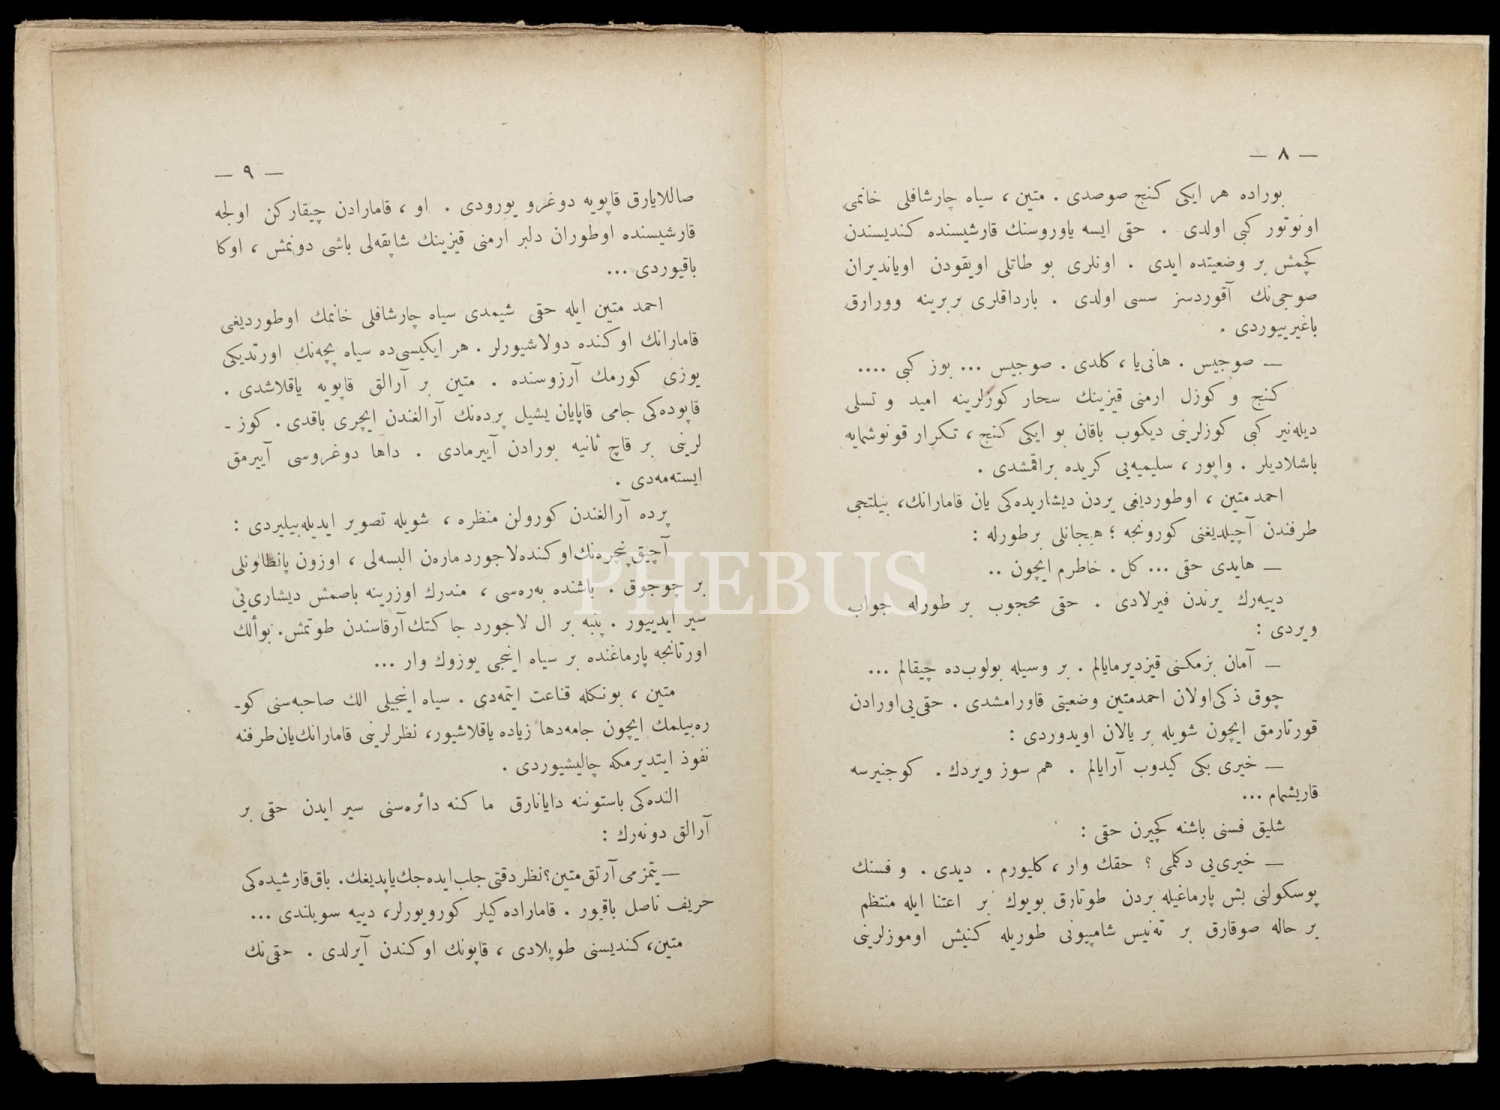 — ٨ —
بوراده هر ایكی كنج صوصدی . متین ، سیاه چارشافلی خانمی
اونوتور كبی اولدی . حقی ایسه یاوروسنك قارشیسنده كندیسندن
كچمش بر وضعیتده ایدی . اونلری بو طاتلی اویقودن اویاندیران
صوجی‌نك آقوردسز سسی اولدی . بارداقلری بربرینه وورارق
باغیرییوردی .
— صوجیس . هانی‌یا ، كلدی . صوجیس ... بوز كبی ....
كنج و كوزل ارمنی قیزینك سحار كوزلرینه امید و تسلی
دیله‌نیر كبی كوزلرینی دیكوب باقان بو ایكی كنج ، تكرار قونوشمایه
باشلادیلر . واپور ، سلیمیه‌یی كریده براقمشدی .
احمد متین ، اوطوردیغی یردن دیشاریده‌كی یان قامارانك، بیلتجی
طرفندن آچیلدیغنی كورونجه ؛ هیجانلی برطورله :
— هایدی حقی ... كل . خاطرم ایچون ..
دییه‌رك یرندن فیرلادی . حقی محجوب بر طورله جواب
ویردی :
— آمان بزمكنی قیزدیرمایالم . بر وسیله بولوب‌ده چیقالم ...
چوق ذكی‌اولان احمدمتین وضعیتی قاورامشدی . حقی‌یی‌اورادن
قورتارمق ایچون شویله بر یالان اویدوردی :
— خیری بكی كیدوب آرایالم . هم سوز ویردك . كوجنیرسه
قاریشمام ...
شلیق فسنی باشنه كچیرن حقی :
— خیری‌یی دكلمی ؟ حقك وار ، كلیورم . دیدی . و فسنك
پوسكولنی بش پارماغیله بردن طوتارق بویوك بر اعتنا ایله منتظم
بر حاله صوقارق بر ته‌نیس شامپیونی طوریله كنیش اوموزلرینی
— ٩ —
صاللایارق قاپویه دوغرو یورودی . او ، قامارادن چیقاركن اولجه
قارشیسنده اوطوران دلبر ارمنی قیزینك شاپقه‌لی باشی دونمش ، اوكا
باقیوردی ...
احمد متین ایله حقی شیمدی سیاه چارشافلی خانمك اوطوردیغی
قامارانك اوكنده دولاشیورلر . هر ایكیسی‌ده سیاه پچه‌نك اورتدیكی
یوزی كورمك آرزوسنده . متین بر آرالق قاپویه یاقلاشدی .
قاپوده‌كی جامی قاپایان یشیل پرده‌نك آرالغندن ایچری باقدی . كوز ـ
لرینی بر قاچ ثانیه بورادن آییرمادی . داها دوغروسی آییرمق
ایسته‌مه‌دی .
پرده آرالغندن كورولن منظره ، شویله تصویر ایدیله‌بیلیردی :
آچیق پنجره‌نك اوكنده لاجورد ماره‌ن البسه‌لی ، اوزون پانطالونلی
بر چوجوق . باشنده به‌ره‌سی ، مندرك اوزرینه باصمش دیشاری‌یی
سیر ایدییور . پنبه بر ال لاجورد جاكتك آرقاسندن طوتمش. بوألك
اورتانجه پارماغنده بر سیاه اینجی یوزوك وار ...
متین ، بونكله قناعت ایتمه‌دی . سیاه اینجیلی الك صاحبه‌سنی كو ـ
ره‌بیلمك ایچون جامه‌دها زیاده یاقلاشیور، نظرلرینی قامارانك‌یان‌طرفنه
نفوذ ایتدیرمكه چالیشیوردی .
النده‌كی باستوننه دایانارق ماكنه دائره‌سنی سیر ایدن حقی بر
آرالق دونه‌رك :
— یتمزمی آرتق متین؟ نظر دقتی جلب ایده‌جك‌یاپدیغك. باق‌قارشیده‌كی
حریف ناصل باقیور . قاماراده‌كیلر كورویورلر، دییه سویلندی ...
متین، كندیسنی طوپلادی ، قاپونك اوكندن آیرلدی . حقی‌نك
PHEBUS